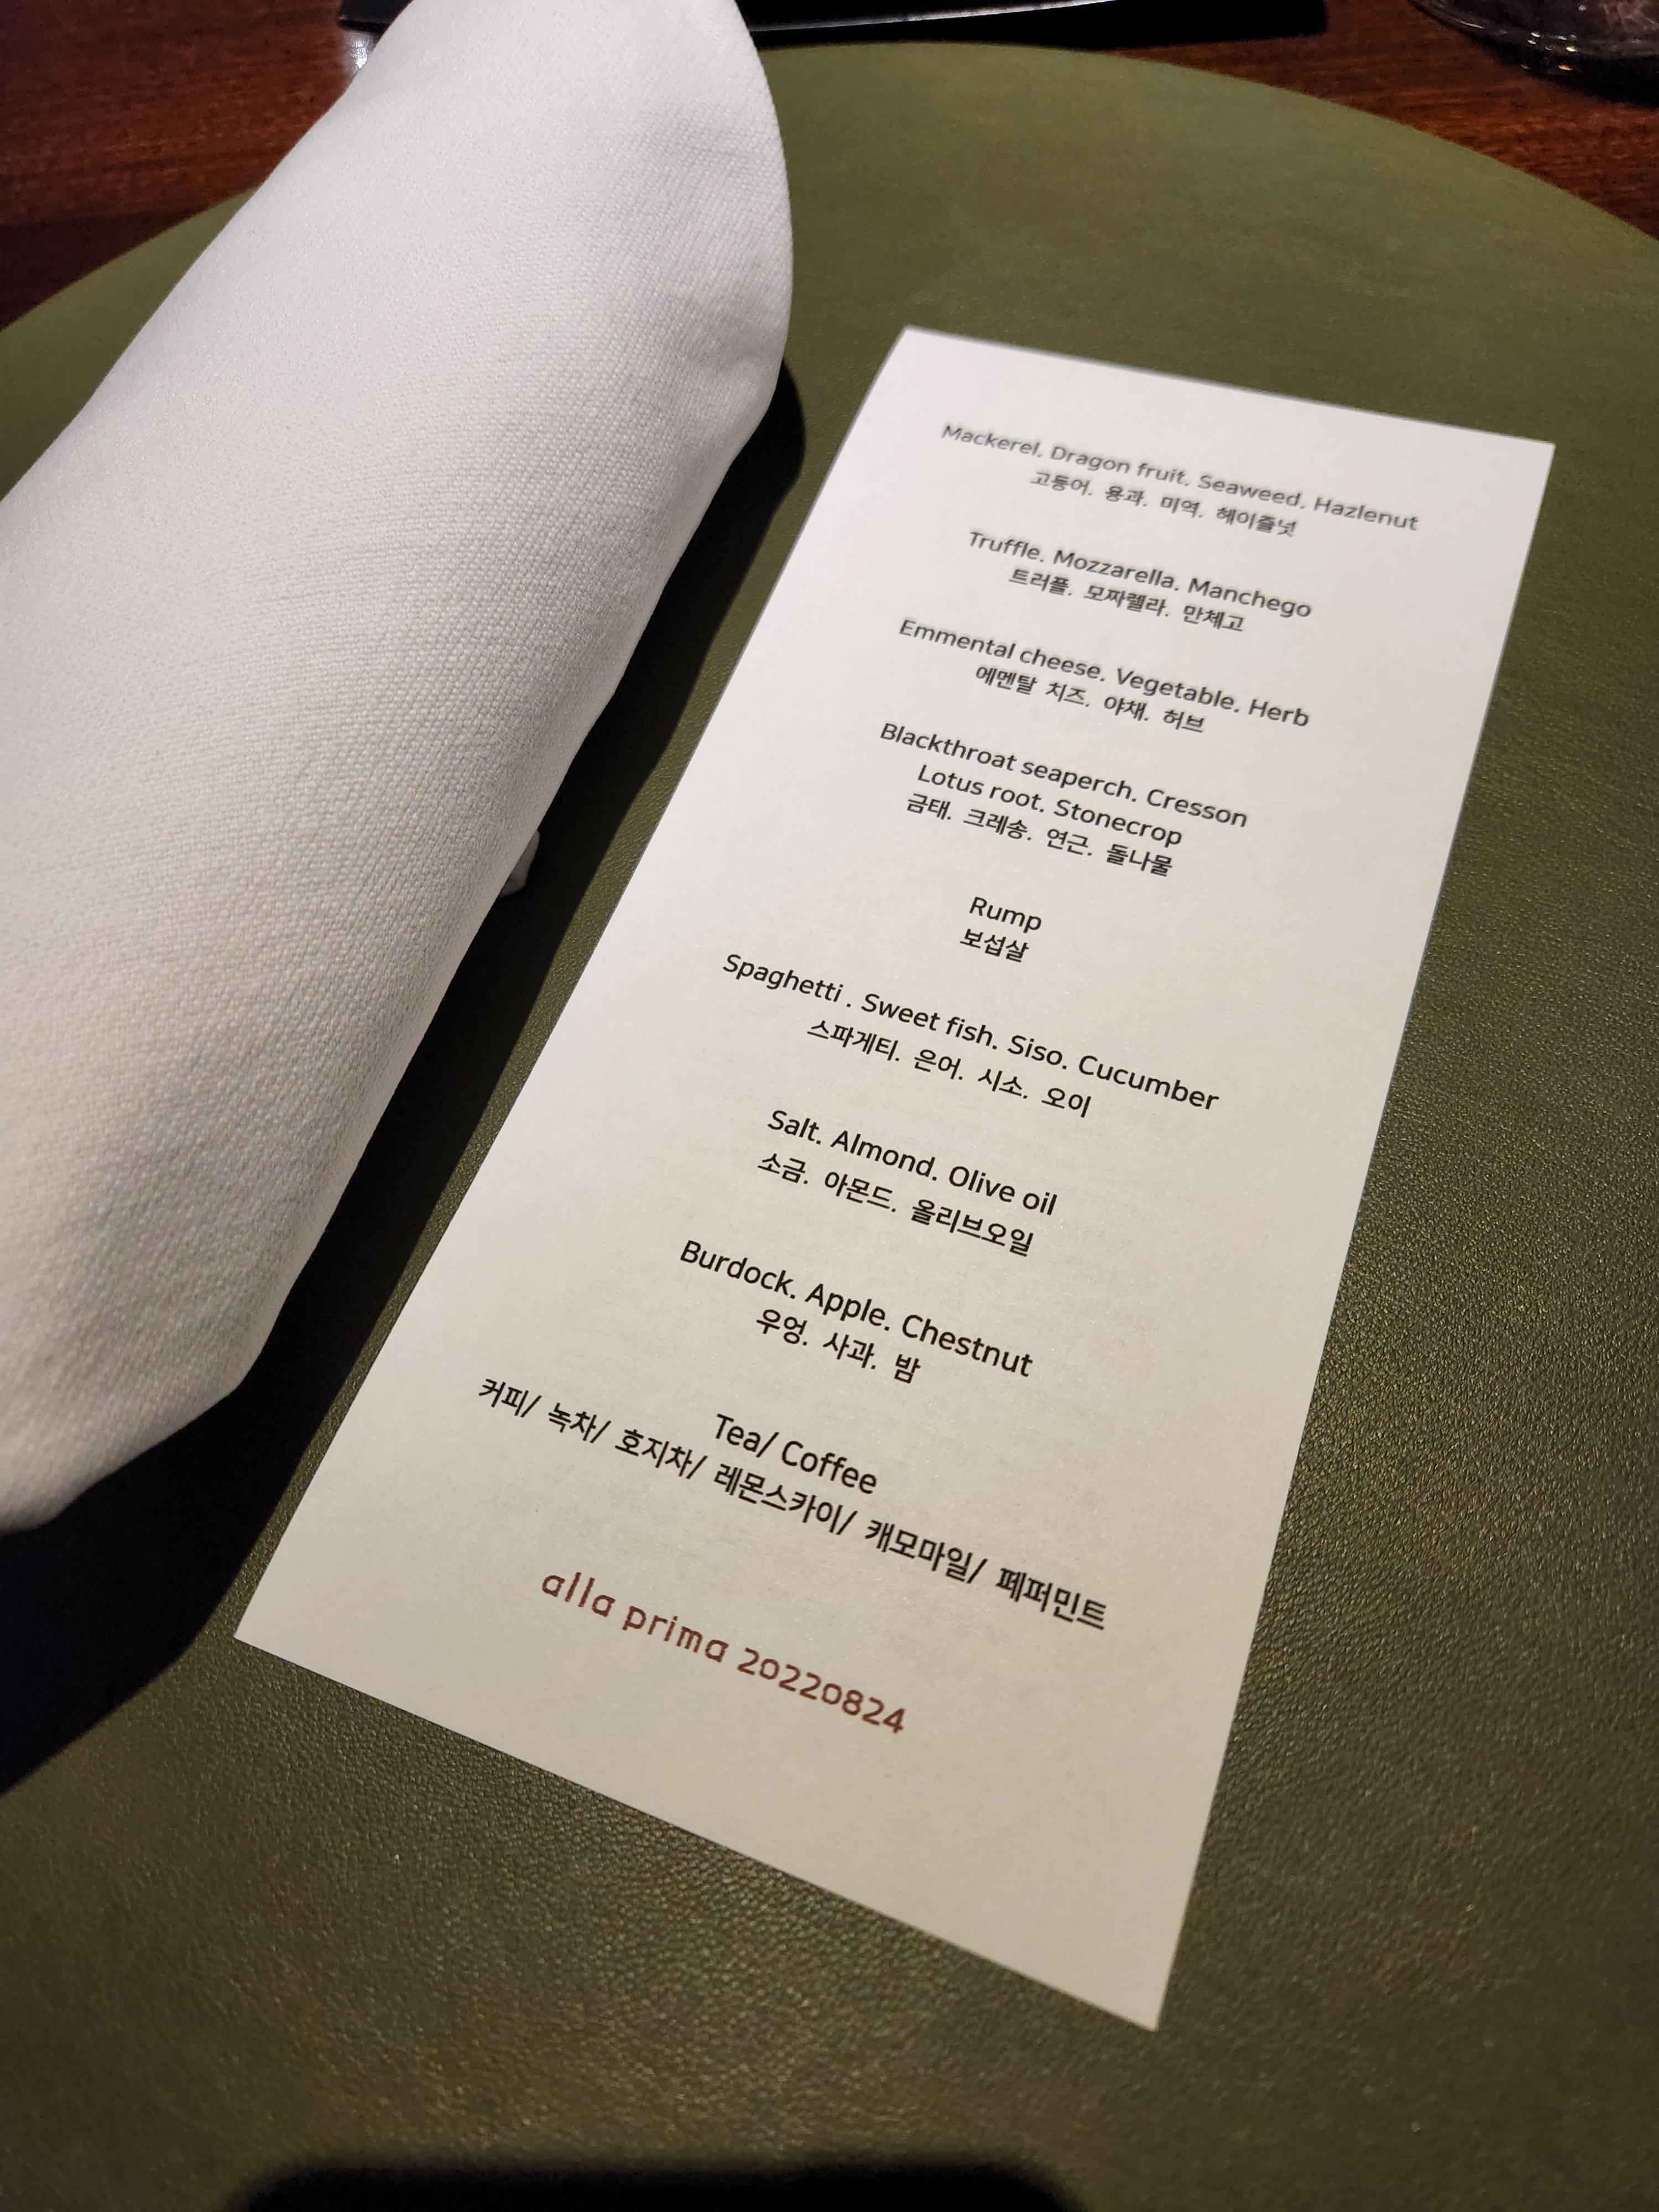 Mackerel. Dragon fruit. Seaweed. Hazlenut
고등어. 용과. 미역. 헤이즐넛
Truffle. Mozzarella. Manchego
트러플. 모짜렐라. 만체고
Emmental cheese. Vegetable. Herb
에멘탈 치즈. 야채. 허브
Blackthroat seaperch. Cresson
Lotus root. Stonecrop
금태. 크레송. 연근. 돌나물
Rump
보섭살
Spaghetti . Sweet fish. Siso. Cucumber
스파게티. 은어. 시소. 오이
Salt. Almond. Olive oil
소금. 아몬드. 올리브오일
Burdock. Apple. Chestnut
우엉. 사과. 밤
Tea/ Coffee
커피/ 녹차/ 호지차/ 레몬스카이/ 캐모마일/ 페퍼민트
alla prima 20220824